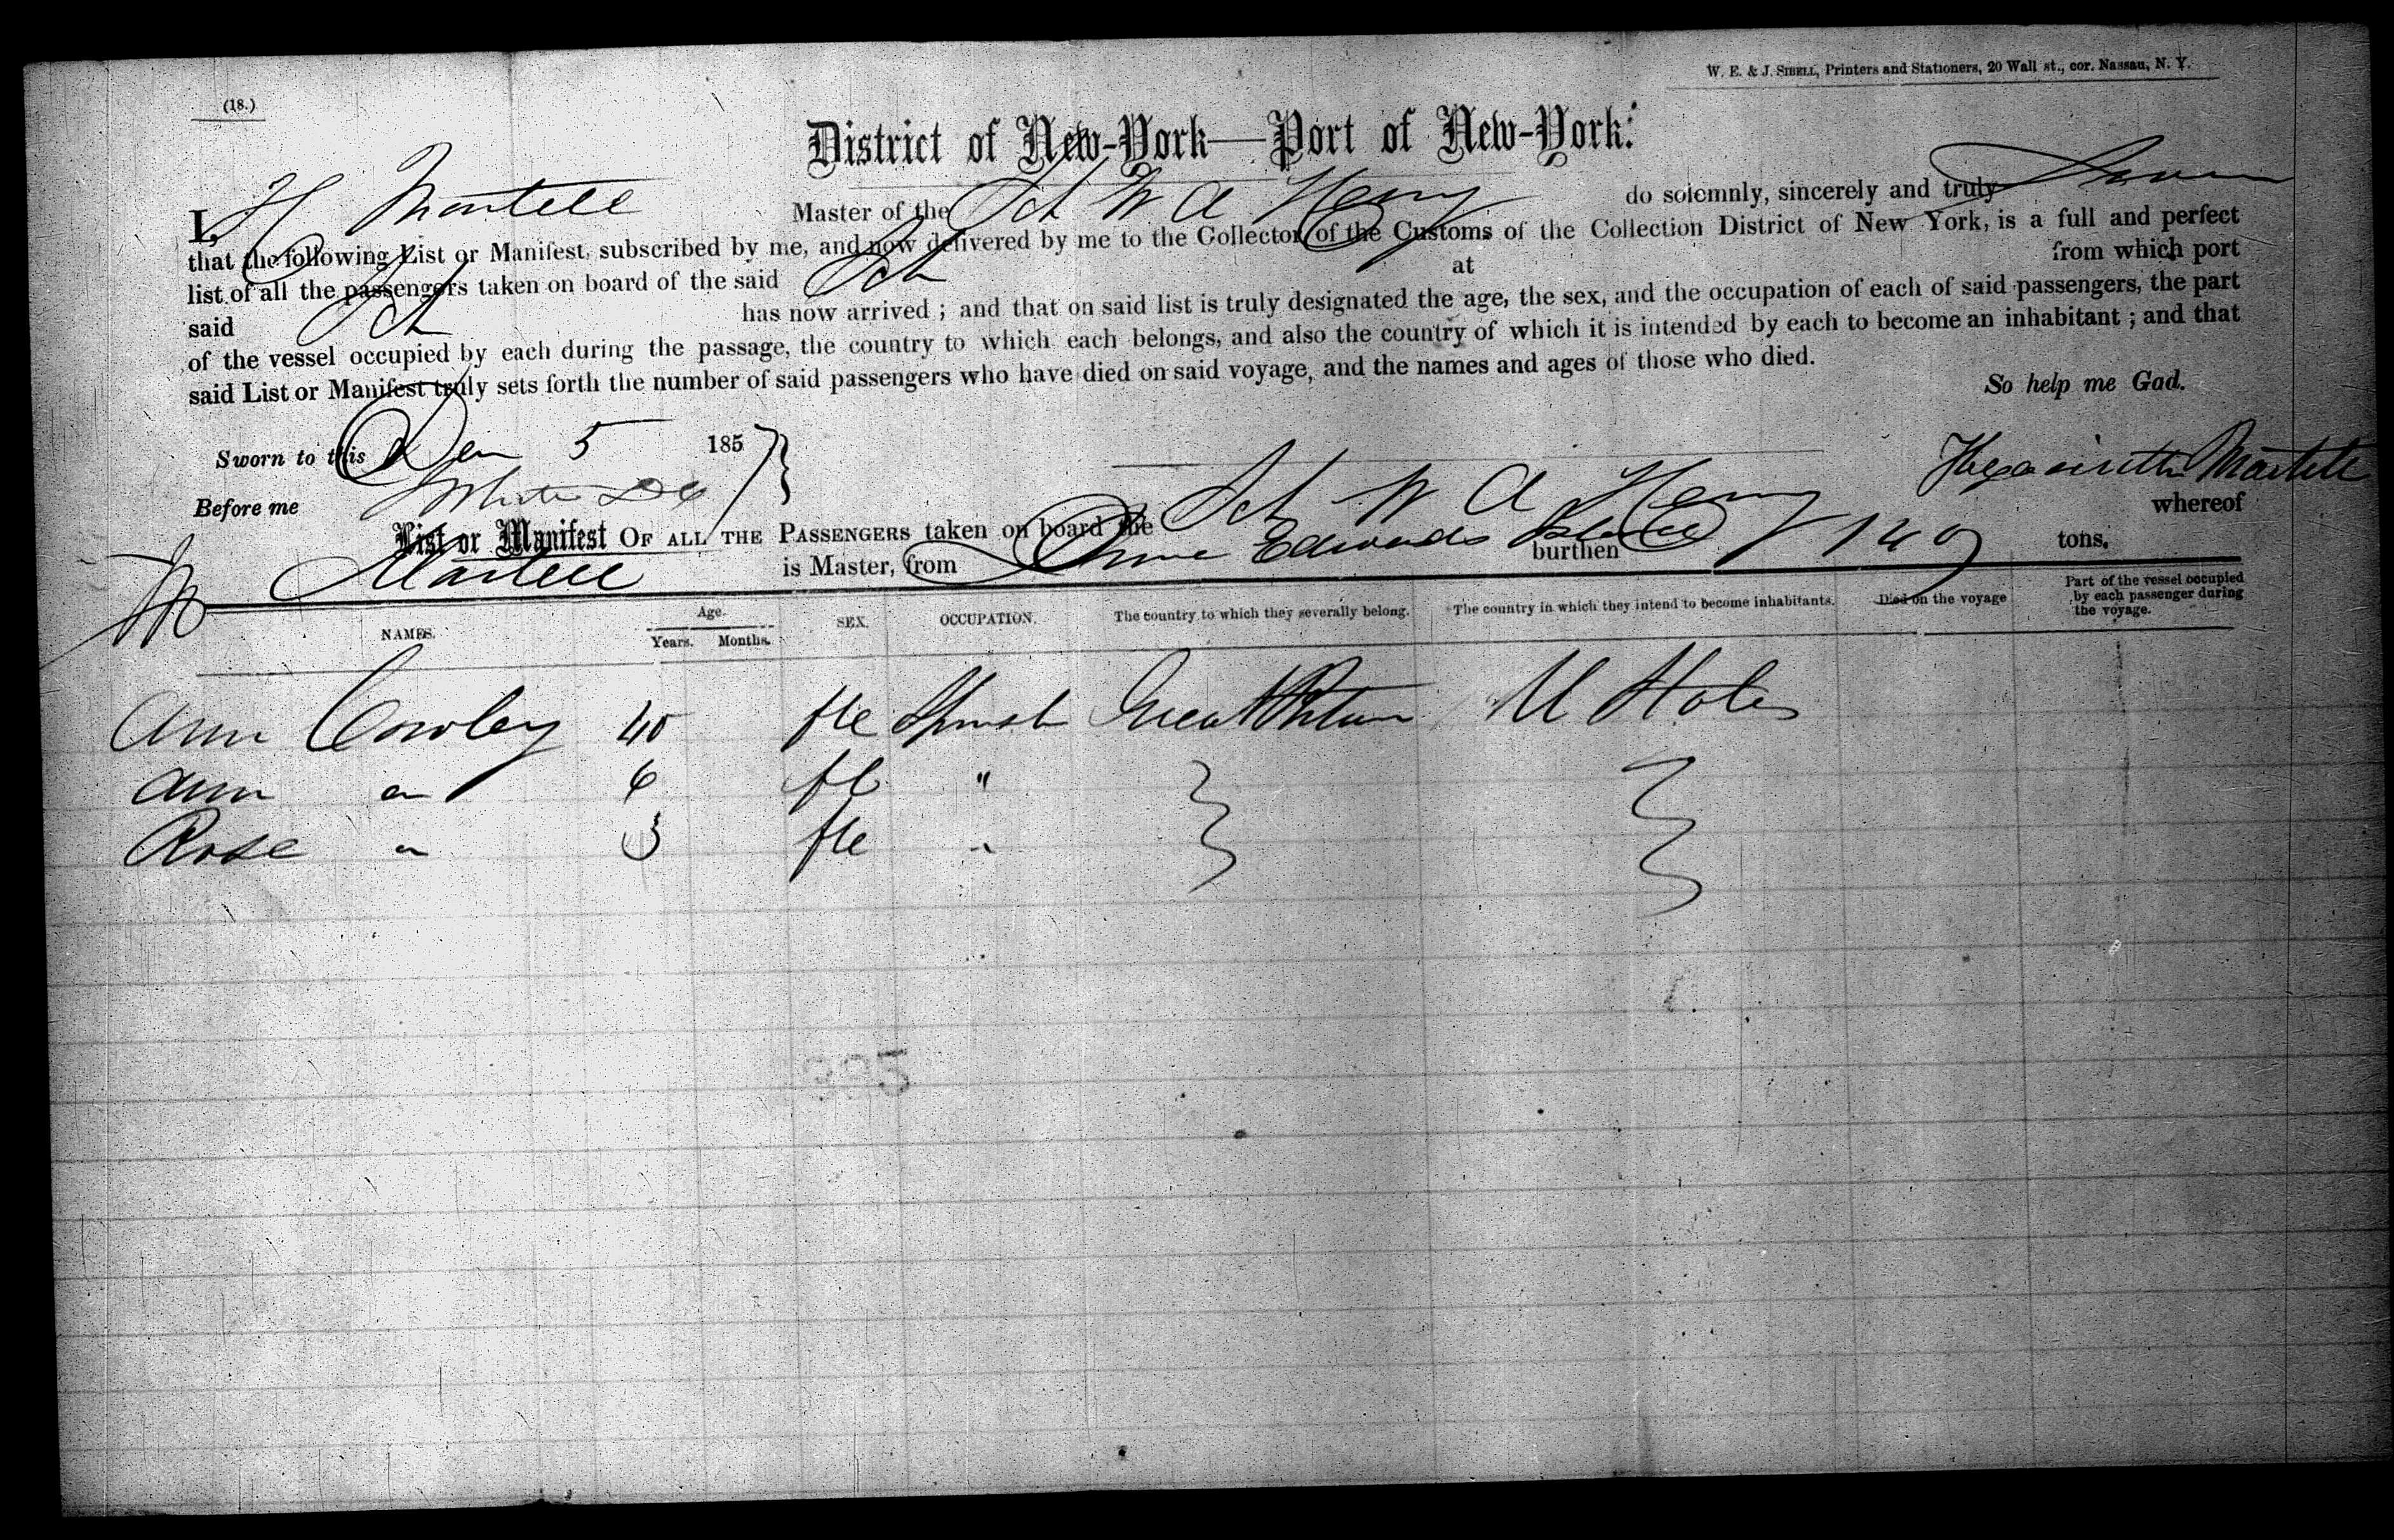 W. E. & J. SIBELL, Printers and Stationers, 20 Wall st., cor. Nassau, N. Y.
(18.)
District of New-York—Port of New-York.
I, H Martell Master of the Sch W A Henry do solemnly, sincerely and truly Swear
that the following List or Manifest, subscribed by me, and now delivered by me to the Collector of the Customs of the Collection District of New York, is a full and perfect
list of all the passengers taken on board of the said Sch at from which port
said Sch has now arrived ; and that on said list is truly designated the age, the sex, and the occupation of each of said passengers, the part
of the vessel occupied by each during the passage, the country to which each belongs, and also the country of which it is intended by each to become an inhabitant ; and that
said List or Manifest truly sets forth the number of said passengers who have died on said voyage, and the names and ages of those who died.
So help me Gad.
Sworn to this 5 1857
Before me
Martell
List or Manifest OF ALL THE PASSENGERS taken on board the Sch W A Henry whereof
H Martell is Master, from Prince Edwards Island burthen 149 tons.
NAMES. Age. Years. Months. SEX. OCCUPATION. The country to which they severally belong. The country in which they intend to become inhabitants. Died on the voyage Part of the vessel occupied by each passenger during the voyage.
Ann Cowley 40 fle Great Britain U States
Ann " 6 fle "
Rose " 3 fle "
332